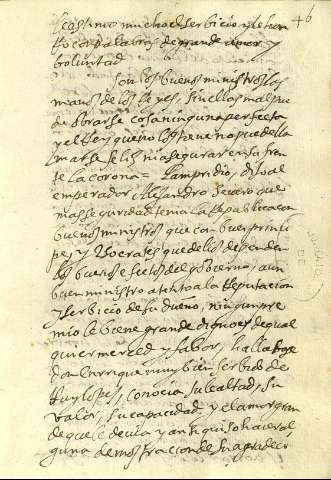 46
estimo mucho el serbicio y le hon
rro con palabras de grande amor y
boluntad
Son los buenos ministros las
manos de los Reyes, sin ellos mal pue
de obrarse cosa ninguna perfecta
y el Rey que no los tiene no puede lla
marse feliz ni asegurar en su fren
te la corona = Lampridio, dijo al
emperador Alejandro Severo que
mas seguridad tenia la Republica con
buenos ministros que con buen princi
pe, y Socrates que dellos dependen
los buenos efectos del gobierno, a un
buen ministro atento a la Reputacion
y serbicio de su dueño, ningun pre
mio le biene grande digno es de qual
quier merced y fabor, hallabase
don Enrrique muy bien serbido de
Ruy lopes, conocia su lealtad, su
valor, su capacidad y el amor gran
de que le devia y anssi quiso hacer al
guna demostracion de su agradeci